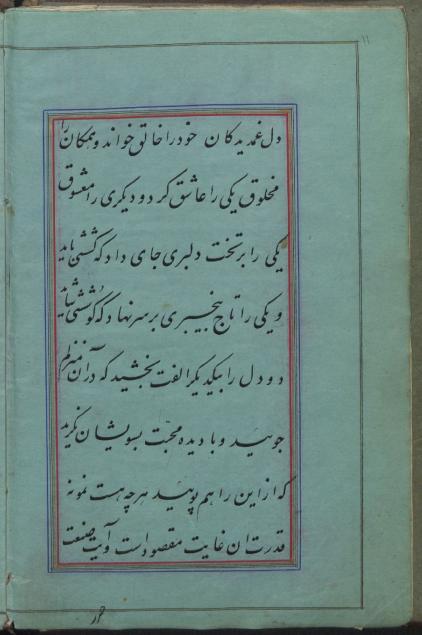 ۱۱
دل غمدیدکان خود را خالق خواند و همکان را
مخلوق یکی را عاشق کرد و دیکری را معشوق
یکی را بر تخت دلبری جای داد که کششی باید
و یکی را تاج بیخبری بر سر نهاد که کوششی شاید
دو دل را بیکدیکر الفت بخشید که در آن منزلم
جوئید و با دیده محبت بسویشان نکرید
که از این راهم پوئید هرچه هست نمونه
قدرت ان غایت مقصود است و آیت صنعت